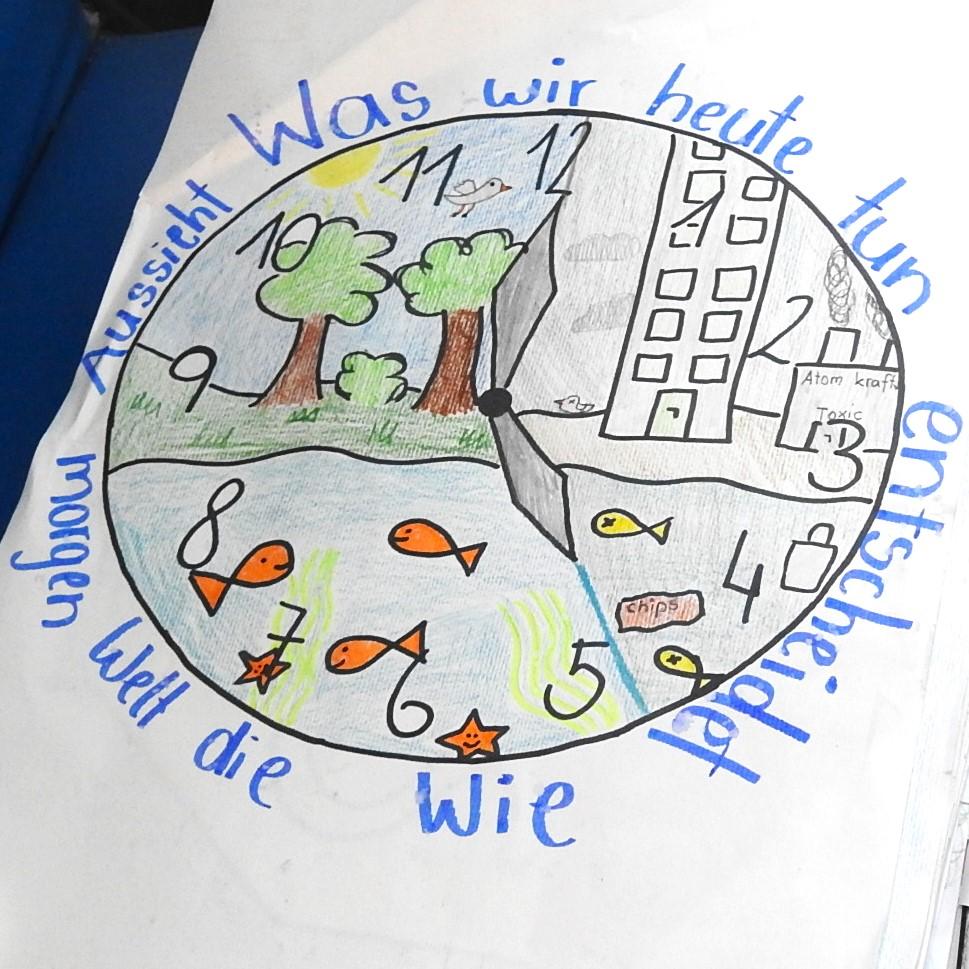 Was wir heute tun entscheidet Wie die Welt morgen Aussieht
12
1
2
3
4
5
6
7
8
9
10
11
Atom kraft
Toxic
chips